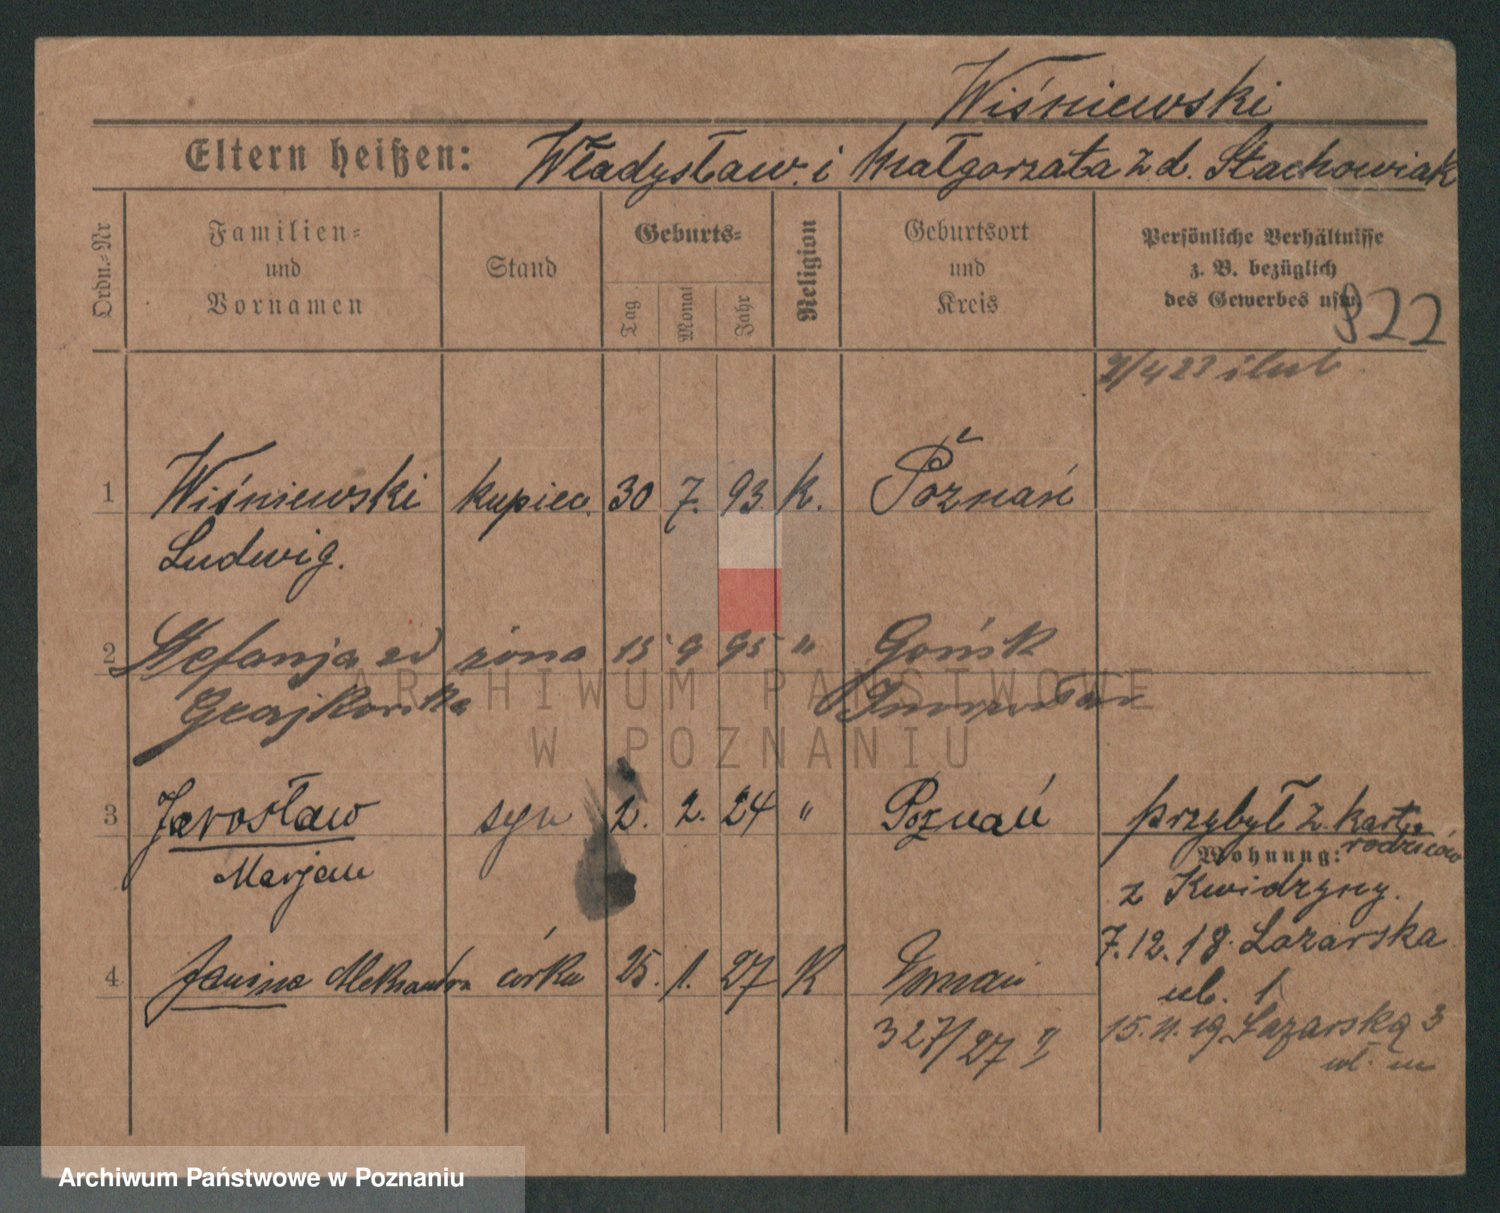 Wiśniewski
Eltern heißen: Władysław i Małgorzata z d. Stachowiak
Ordn.-Nr
Familien- und Vornamen
Stand
Geburts-
Tag
Monat
Jahr
Religion
Geburtsort und Kreis
Persönliche Verhältnisse
z. B. bezüglich
des Gewerbes usw.
922
2/4 23 ślub
1 Wiśniewski kupiec. 30 7. 93. K. Poznań
Ludwig.
2 Stefanja zd żona 15 9 95 " Gońsk
3 Jarosław syn 2. 2. 24 " Poznań przybył z kart.
Marjan
rodziców
Wohnung:
z Kwidzyny.
7.12.18. Lazarska
4 Janina Aleksandra córka 25. 1. 27 K Poznań
ul. 1
327/27 II
15.11.19 Łazarska 3
ARCHIWUM PAŃSTWOWE
W POZNANIU
Archiwum Państwowe w Poznaniu